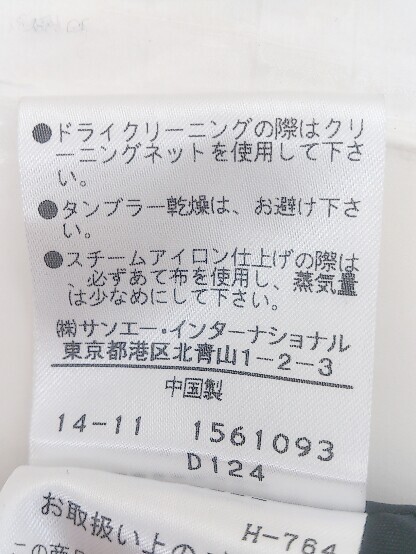 ●ドライクリーニングの際はクリ
ーニングネットを使用して下さ
い。
●タンブラー乾燥は、お避け下さ
い。
●スチームアイロン仕上げの際は
、必ずあて布を使用し、蒸気量
は少なめにして下さい。
㈱サンエー・インターナショナル
東京都港区北青山1-2-3
中国製
14-11 1561093
D124
お取扱い上の
H-764
この商品